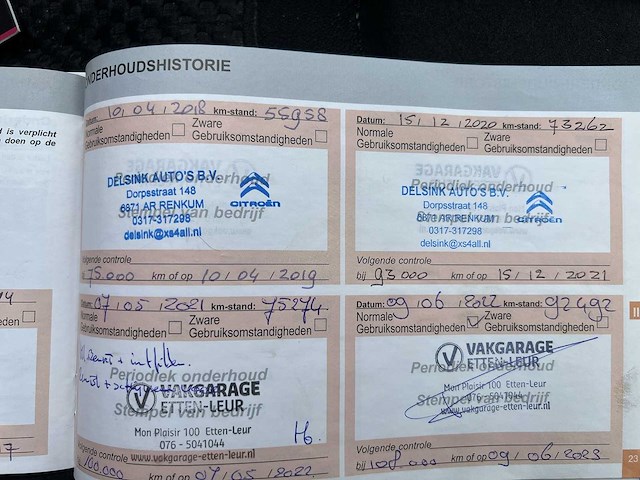 ONDERHOUDSHISTORIE
d is verplicht
n doen op de
Datum: 10/04/2018 km-stand: 55958
Normale Gebruiksomstandigheden
Zware Gebruiksomstandigheden
Periodiek onderhoud
Stempel van bedrijf
DELSINK AUTO'S B.V.
Dorpsstraat 148
6871 AR RENKUM
0317-317298
delsink@xs4all.nl
CITROËN
Volgende controle
75.000 km of op 10/04/2019
Datum: 15/12/2020 km-stand: 73262
Normale Gebruiksomstandigheden
Zware Gebruiksomstandigheden
Periodiek onderhoud
Stempel van bedrijf
DELSINK AUTO'S B.V.
Dorpsstraat 148
6871 AR RENKUM
0317-317298
delsink@xs4all.nl
CITROËN
Volgende controle
bij 93000 km of op 15/12/2021
Datum: 07/05/2021 km-stand: 75274
Normale Gebruiksomstandigheden
Zware Gebruiksomstandigheden
Periodiek onderhoud
Stempel van bedrijf
VAKGARAGE
ETTEN-LEUR
Mon Plaisir 100 Etten-Leur
076 - 5041044
www.vakgarage-etten-leur.nl
Volgende controle
100.000 km of op 07/05/2022
Datum: 09/06/2022 km-stand: 92492
Normale Gebruiksomstandigheden
Zware Gebruiksomstandigheden
Periodiek onderhoud
Stempel van bedrijf
VAKGARAGE
ETTEN-LEUR
Mon Plaisir 100 Etten-Leur
076 - 5041044
www.vakgarage-etten-leur.nl
Volgende controle
bij 108.000 km of op 09/06/2023
23